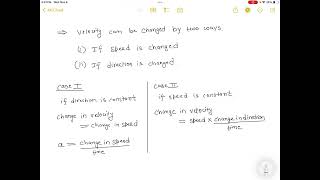 ⇒ velocity can be changed by two ways
(i) If speed is changed
(ii) If direction is changed
case I
if direction is constant
change in velocity
= change in speed
a = change in speed / time
case II
if speed is constant
change in velocity
= speed × change in direction / time